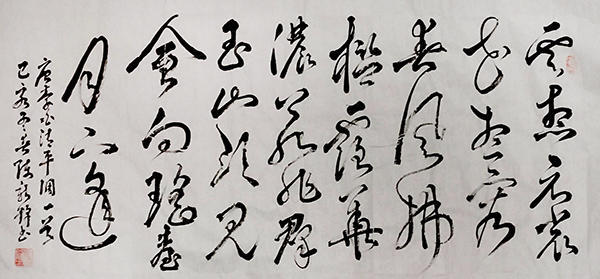 云想衣裳
花想容
春风拂
槛露華
濃若非群
玉山头见
会向瑶臺
月下逢
唐李白清平调一首
己亥 春 书